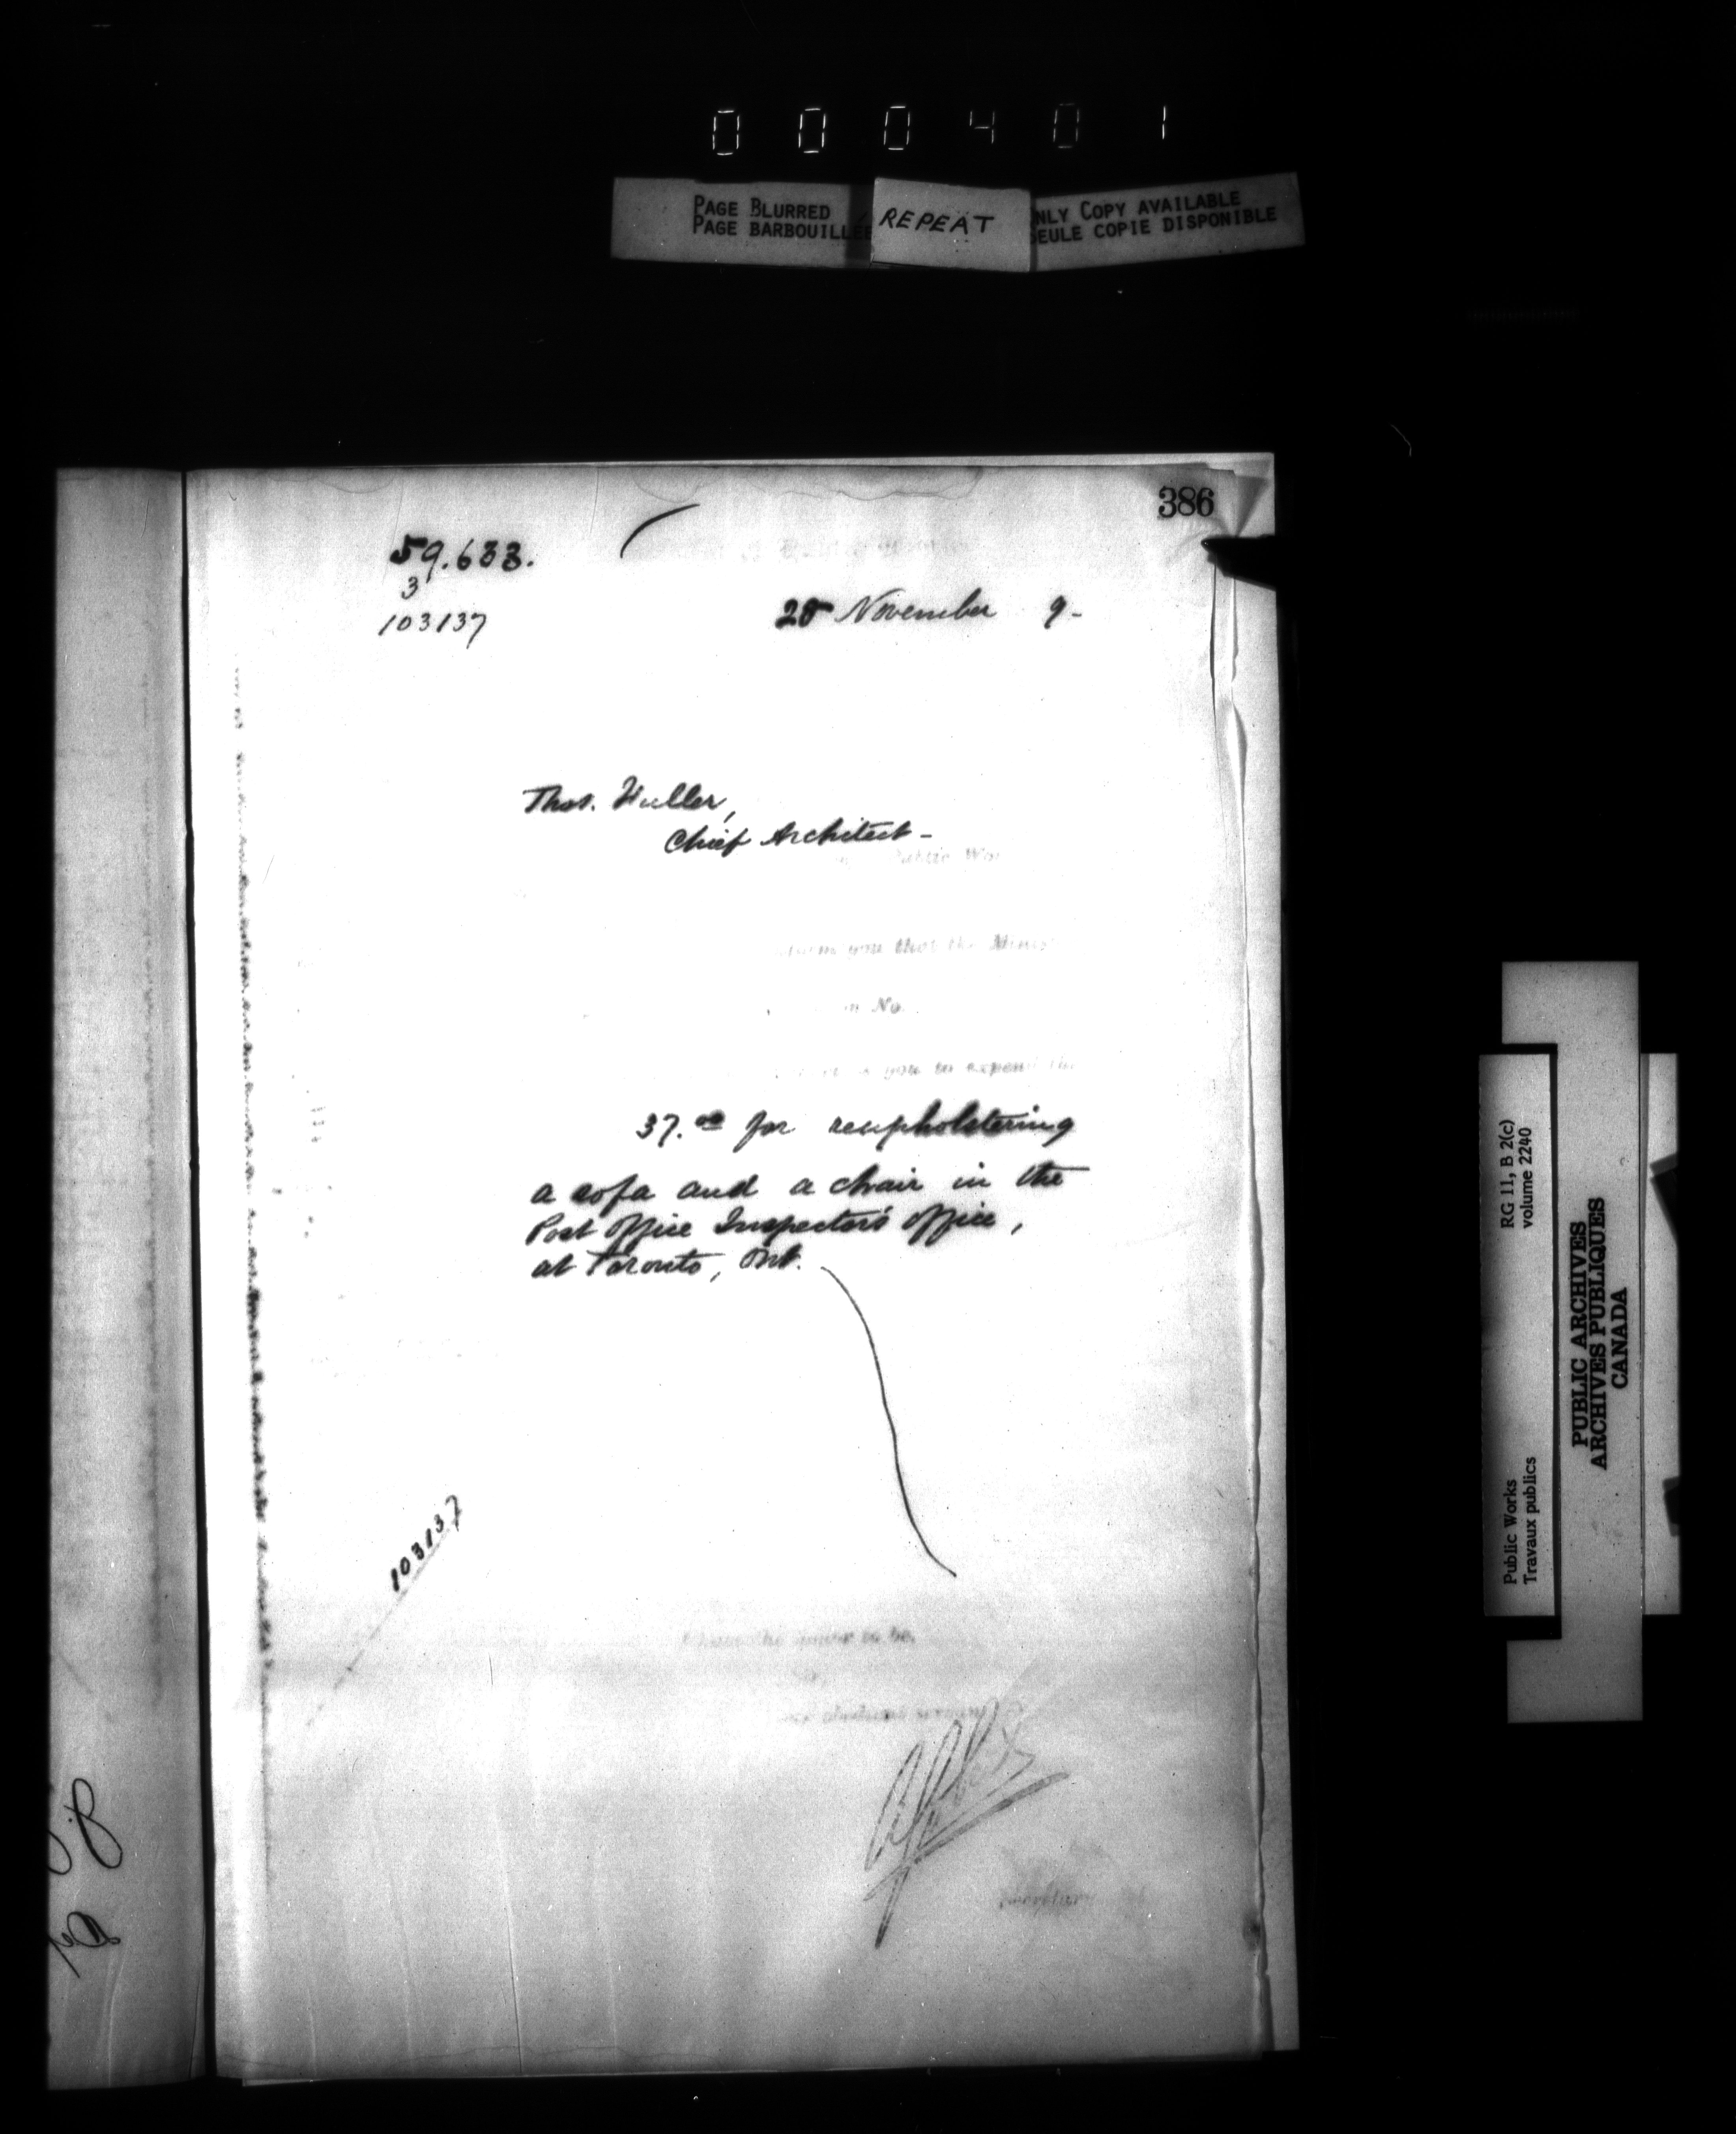 0 0 0 4 0 1
PAGE BLURRED
PAGE BARBOUILLÉE
REPEAT
NLY COPY AVAILABLE
SEULE COPIE DISPONIBLE
386
59.633.
3
103137
25 November 9-
Thos. Fuller,
Chief Architect-
Public Wor
you that the Minis
No.
you to expend
37.00 for reupholstering
a sofa and a chair in the
Post Office Inspector's Office,
at Toronto, Ont.
103137
the honor to be,
obedient servant
Secretary
RG 11, B 2(c)
volume 2240
Public Works
Travaux publics
PUBLIC ARCHIVES
ARCHIVES PUBLIQUES
CANADA